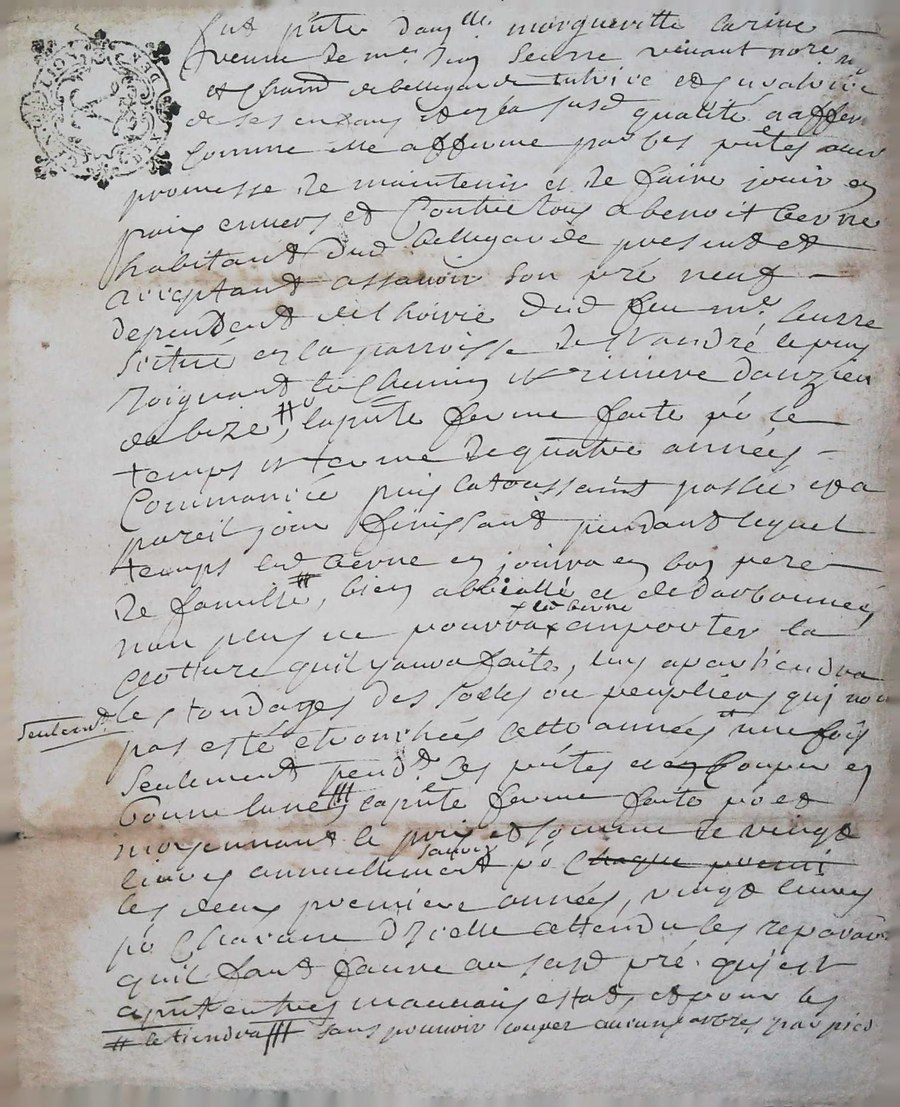 fut pnte dam^lle morgueritte
veuve de m^e Jean Seurre vivant nore
et Chatt de bellegarde tutrice et
de ses enfans et en la susd qualité a affer
comme elle afferme par ces pntes avec
promesse de maintenir et de faire jouir en
paix envers et Contre tous a benoit berne
habitant dud bellegarde present et
acceptant assavoir son pré neuf –
dependent de lhoirie dud feu m^e Seurre
situé en la parroisse de St andré le puy
Joignant le Chemin et riviere danzieu
de bize #, la pnte ferme faite po le
temps et terme de quatre années –
Commancée puis la toussaint passée et a
pareil jour finissant pendant lequel
temps led berne en jouira en bon pere –
de famille #, bien
non plus ne pourra x emporter la
+ led berne
Clotture quil y aura faite, luy apartiendra
les tondages des solles ou peupliers qui nont
seulemt
pas esté ebronchées cette année et une fois
seulement pendt Ces pntes Couper en
bonne lune ###, la pnte ferme faite po et
moyennant le prix et somme de vingt
livres annuellement po Chaque
savoir
les deux premiere années, vingt livres
po Chacune dicelle attendu les reparaons
quil faut faire au susd pré qui est
apnt en tres mauvais estat, et pour les
# letiendra ### sans pouvoir couper aucuns arbres par pied